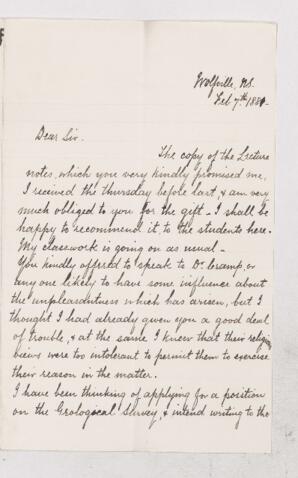 Wolfville, N.S.
Feb 7th 1881.
Dear Sir.
The copy of the Lecture
notes, which you very kindly promised me,
I received the thursday before last, & am very
much obliged to you for the gift - I shall be
happy to recommend it to the students here.
My classwork is going on as usual -
You kindly offered to speak to Dr. Cramp, or
any one likely to have some influence about
the unpleasantness which has arisen, but I
thought I had already given you a good deal
of trouble, & at the same I knew that their religious
views were too intolerant to permit them to exercise
their reason in the matter.
I have been thinking of applying for a position
on the Geological Survey, & intend writing to the